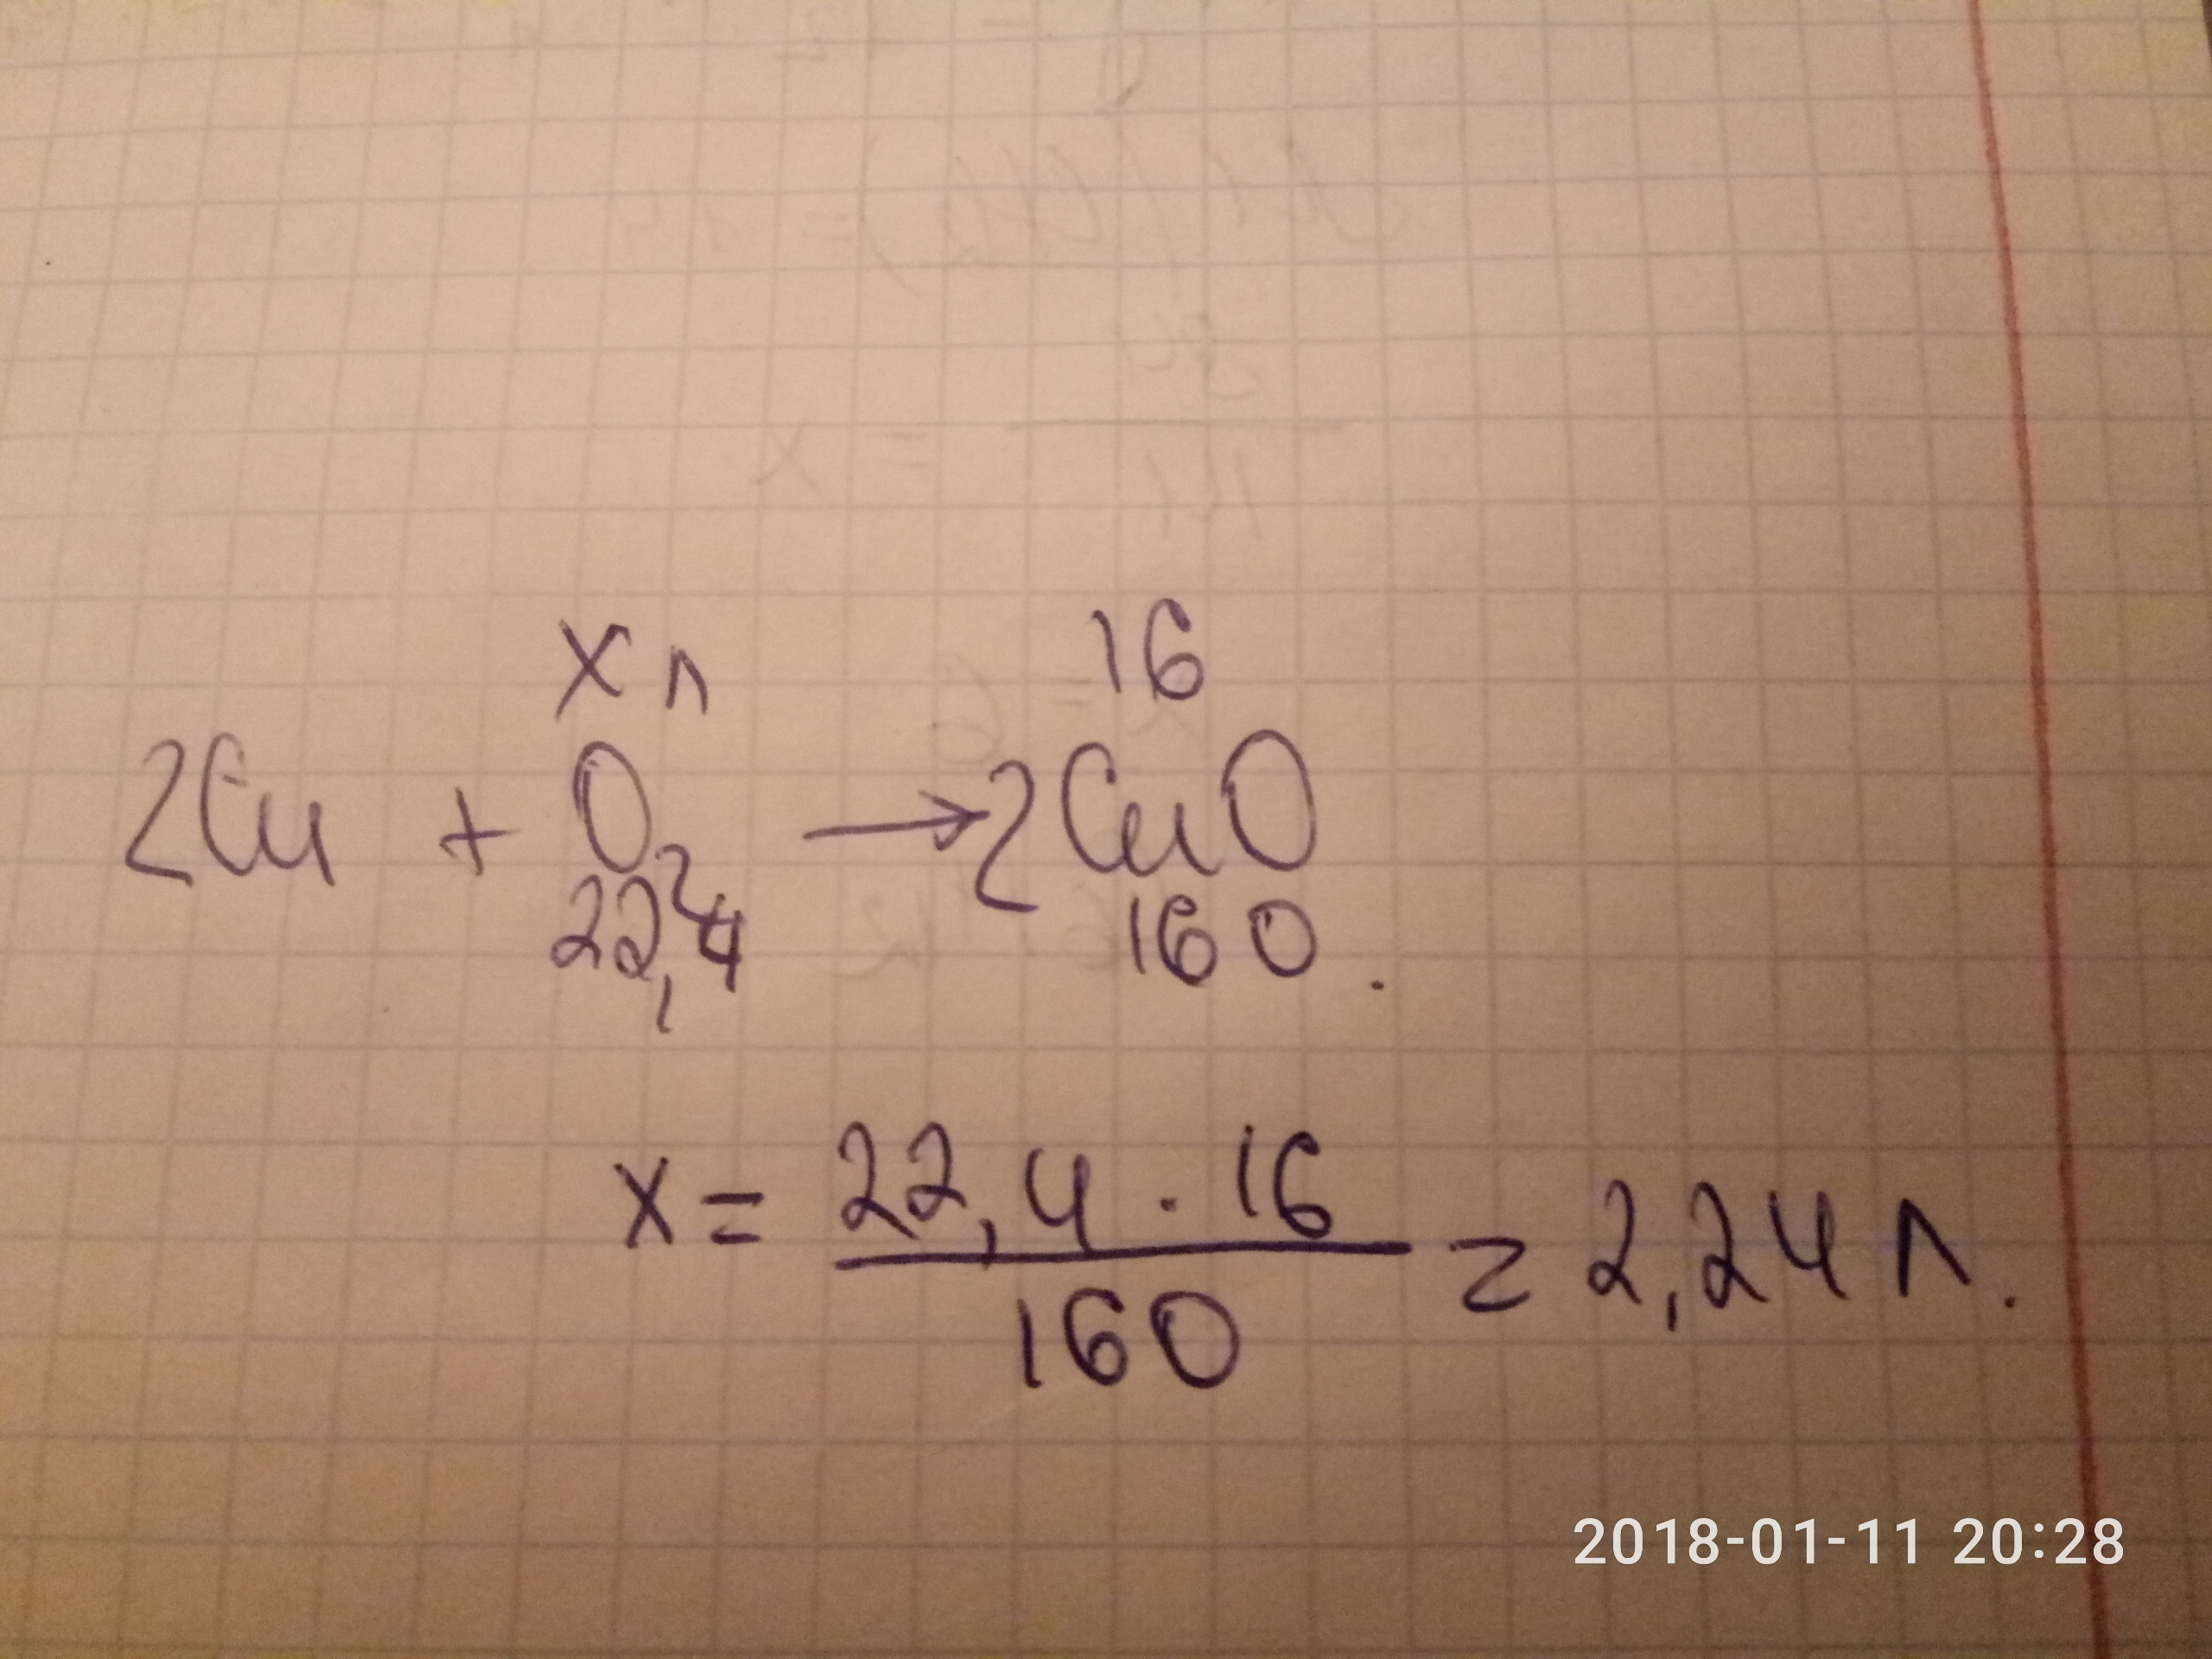 х л 16
2Cu + O2 → 2CuO
22,4 160.
x = 22,4 · 16 / 160 = 2,24 л.
2018-01-11 20:28